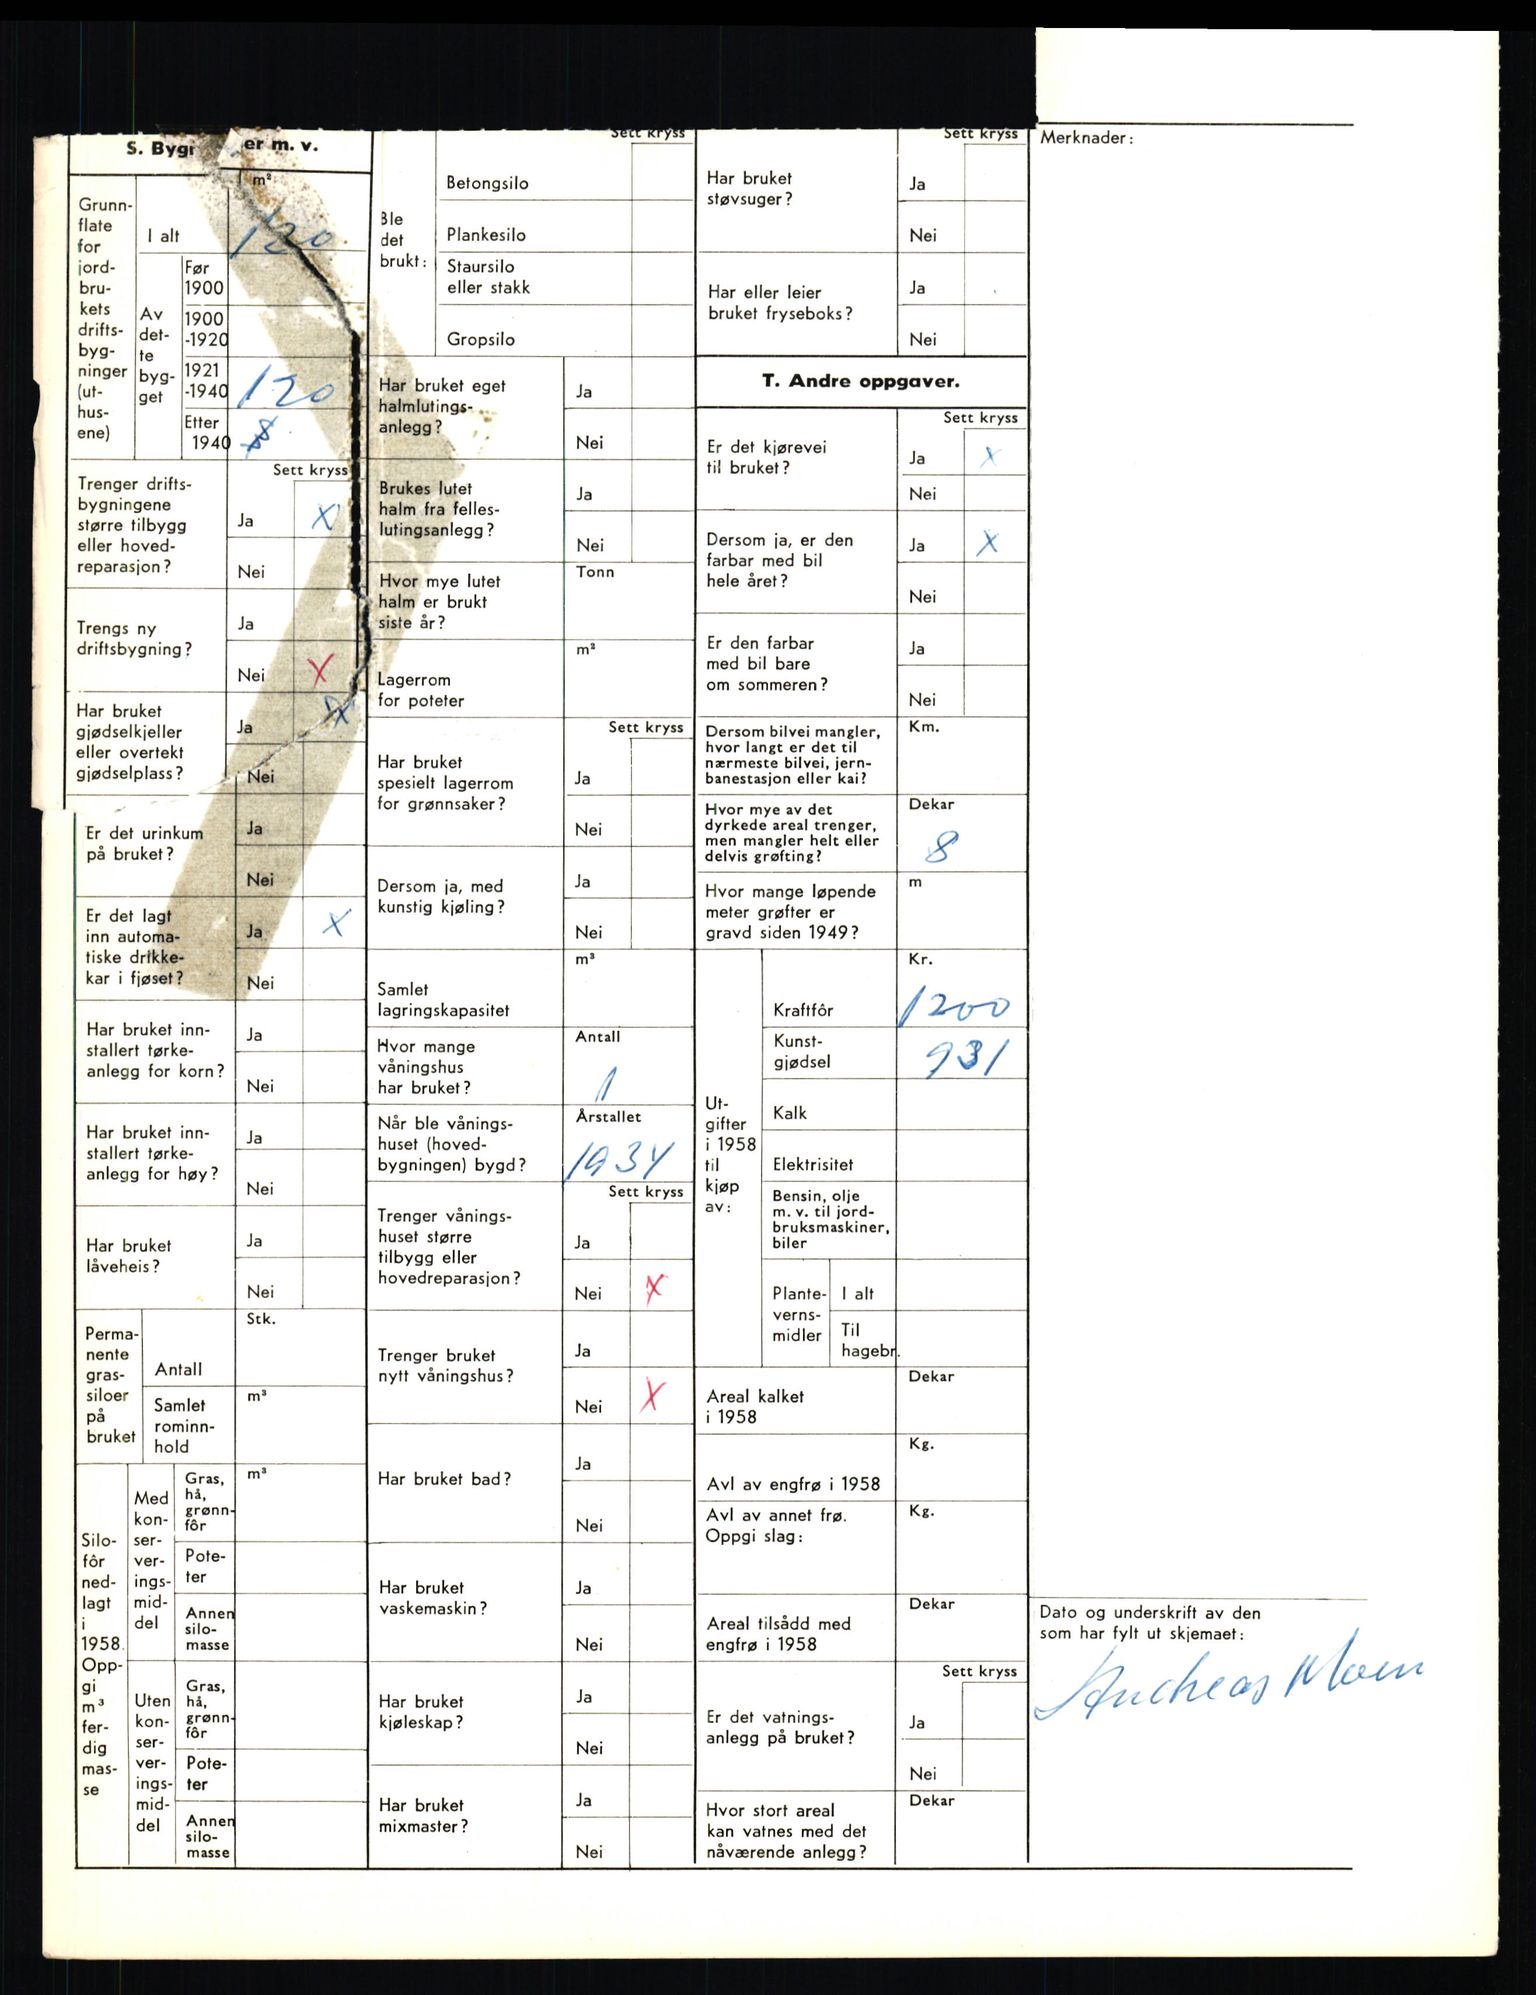 S. Bygn er m. v.
m²
Grunn-
flate
for
jord-
bru-
kets
drifts-
byg-
ninger
(ut-
hus-
ene)
I alt
120
Av
det-
te
byg-
get
Før
1900
1900
-1920
1921
-1940
120
Etter
1940
Sett kryss
Trenger drifts-
bygningene
større tilbygg
eller hoved-
reparasjon?
Ja X
Nei
Trengs ny
driftsbygning?
Ja
Nei X
Har bruket
gjødselkjeller
eller overtekt
gjødselplass?
Ja X
Nei
Er det urinkum
på bruket?
Ja
Nei
Er det lagt
inn automa-
tiske drikke-
kar i fjøset?
Ja X
Nei
Har bruket inn-
stallert tørke-
anlegg for korn?
Ja
Nei
Har bruket inn-
stallert tørke-
anlegg for høy?
Ja
Nei
Har bruket
låveheis?
Ja
Nei
Perma-
nente
gras-
siloer
på
bruket
Stk.
Antall
Samlet
rominn-
hold
m³
Silo-
fôr
ned-
lagt
i
1958.
Opp-
gi
m³
fer-
dig
mas-
se
Med
kon-
ser-
ver-
ings-
mid-
del
Gras,
hå,
grønn-
fôr
m³
Pote-
ter
Annen
silo-
masse
Uten
kon-
ser-
ver-
ings-
mid-
del
Gras,
hå,
grønn-
fôr
Pote-
ter
Annen
silo-
masse
Sett kryss
Ble
det
brukt:
Betongsilo
Plankesilo
Staursilo
eller stakk
Gropsilo
Har bruket eget
halmlutings-
anlegg?
Ja
Nei
Brukes lutet
halm fra felles-
lutingsanlegg?
Ja
Nei
Hvor mye lutet
halm er brukt
siste år?
Tonn
Lagerrom
for poteter
m²
Sett kryss
Har bruket
spesielt lagerrom
for grønnsaker?
Ja
Nei
Dersom ja, med
kunstig kjøling?
Ja
Nei
Samlet
lagringskapasitet
m³
Hvor mange
våningshus
har bruket?
Antall
1
Når ble vånings-
huset (hoved-
bygningen) bygd?
Årstallet
1934
Sett kryss
Trenger vånings-
huset større
tilbygg eller
hovedreparasjon?
Ja
Nei X
Trenger bruket
nytt våningshus?
Ja
Nei X
Har bruket bad?
Ja
Nei
Har bruket
vaskemaskin?
Ja
Nei
Har bruket
kjøleskap?
Ja
Nei
Har bruket
mixmaster?
Ja
Nei
Sett kryss
Har bruket
støvsuger?
Ja
Nei
Har eller leier
bruket fryseboks?
Ja
Nei
T. Andre oppgaver.
Sett kryss
Er det kjørevei
til bruket?
Ja X
Nei
Dersom ja, er den
farbar med bil
hele året?
Ja X
Nei
Er den farbar
med bil bare
om sommeren?
Ja
Nei
Dersom bilvei mangler,
hvor langt er det til
nærmeste bilvei, jern-
banestasjon eller kai?
Km.
Hvor mye av det
dyrkede areal trenger,
men mangler helt eller
delvis grøfting?
Dekar
8
Hvor mange løpende
meter grøfter er
gravd siden 1949?
m
Ut-
gifter
i 1958
til
kjøp
av:
Kr.
Kraftfôr 1200
Kunst-
gjødsel 931
Kalk
Elektrisitet
Bensin, olje
m. v. til jord-
bruksmaskiner,
biler
Plante-
verns-
midler
I alt
Til
hagebr.
Areal kalket
i 1958
Dekar
Avl av engfrø i 1958
Kg.
Avl av annet frø.
Oppgi slag:
Kg.
Areal tilsådd med
engfrø i 1958
Dekar
Sett kryss
Er det vatnings-
anlegg på bruket?
Ja
Nei
Hvor stort areal
kan vatnes med det
nåværende anlegg?
Dekar
Merknader:
Dato og underskrift av den
som har fylt ut skjemaet:
Andreas Moen